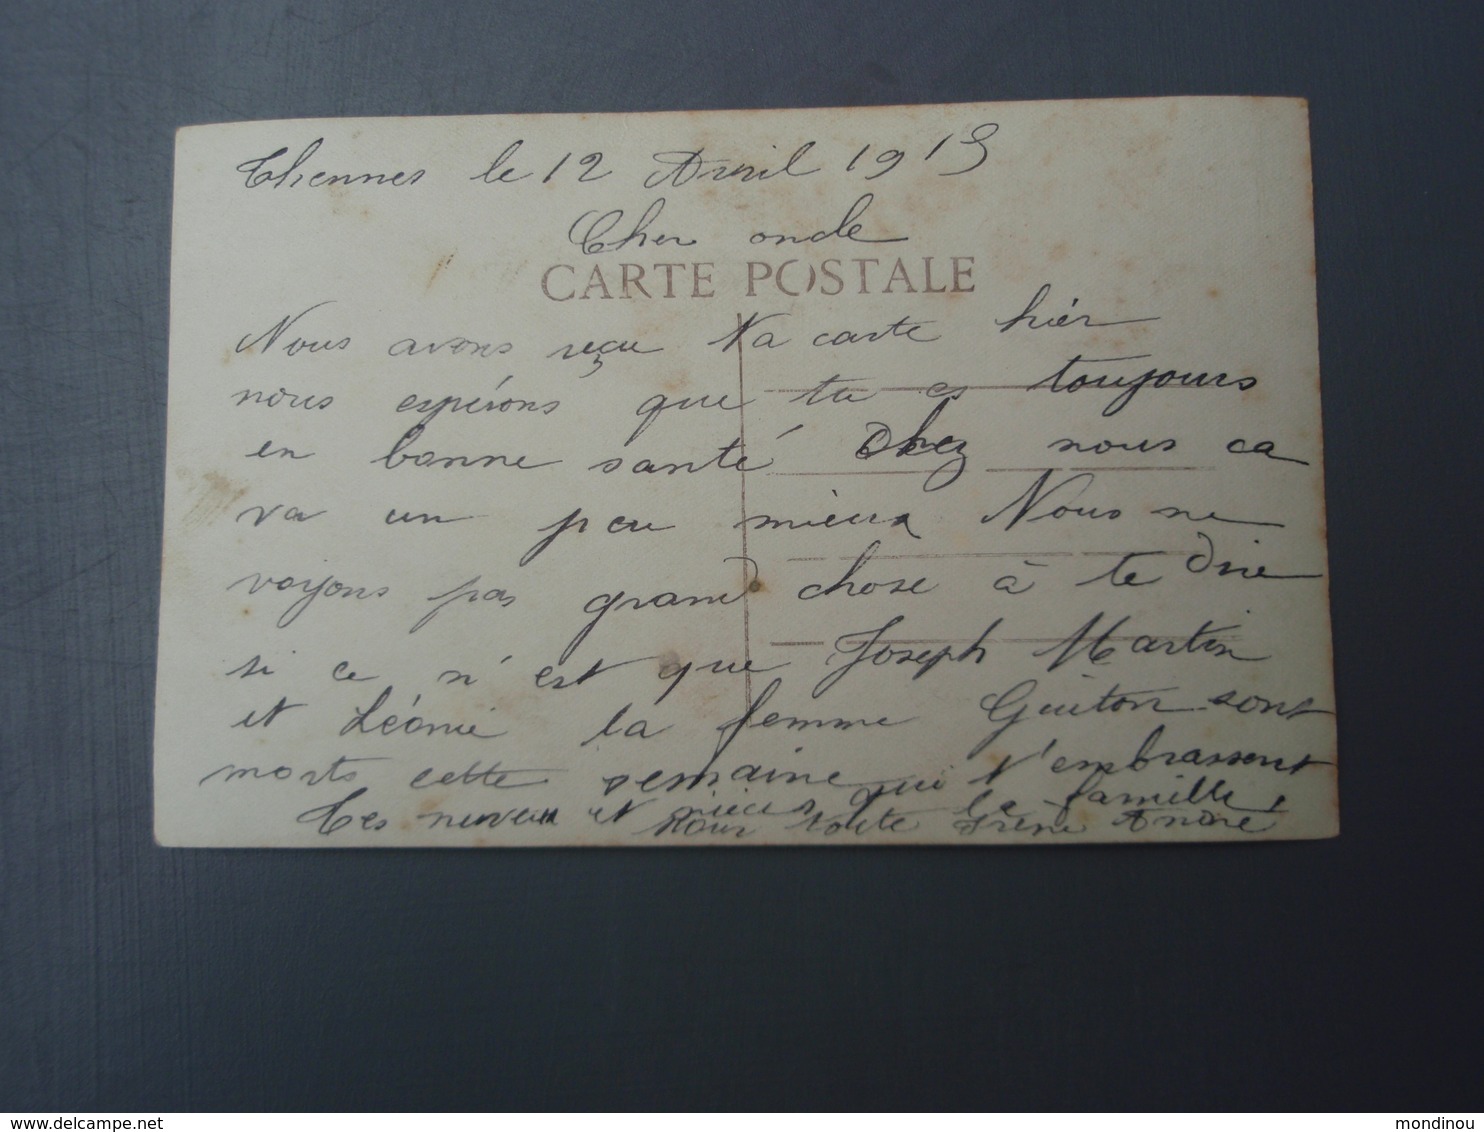 Thennes le 12 Avril 1915
Cher oncle
CARTE POSTALE
Nous avons reçu ta carte hièr
nous espérons que tu es toujours
en bonne santé Chez nous ca
va un peu mieux Nous ne
voyons pas grand chose à te dire
si ce n'est que Joseph Martin
et Léonie la femme Guiton sont
morts cette semaine
Tes neveux et nièces qui t'embrassent
Pour toute la famille
Irène André
mondinou